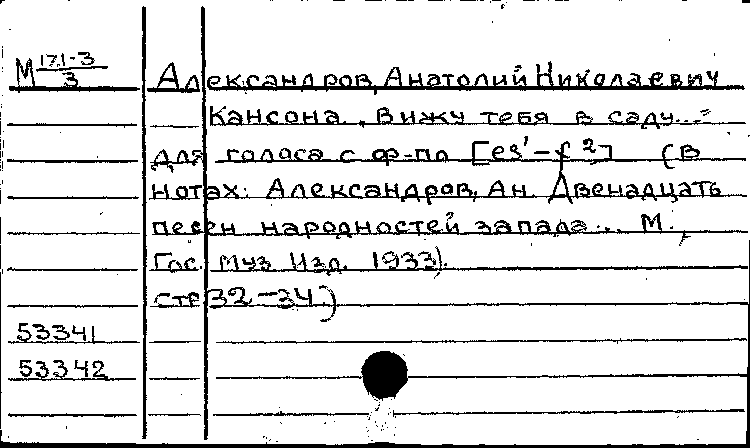 М 171-3/3
Александров, Анатолий Николаевич
Кансона. Вижу тебя в саду...
для голоса с ф-пл [es'-f²] (В
нотах: Александров, Ан. Двенадцать
песен народностей запада... М.,
Гос. Муз Изд. 1933).
стр 32-34)
53341
53342